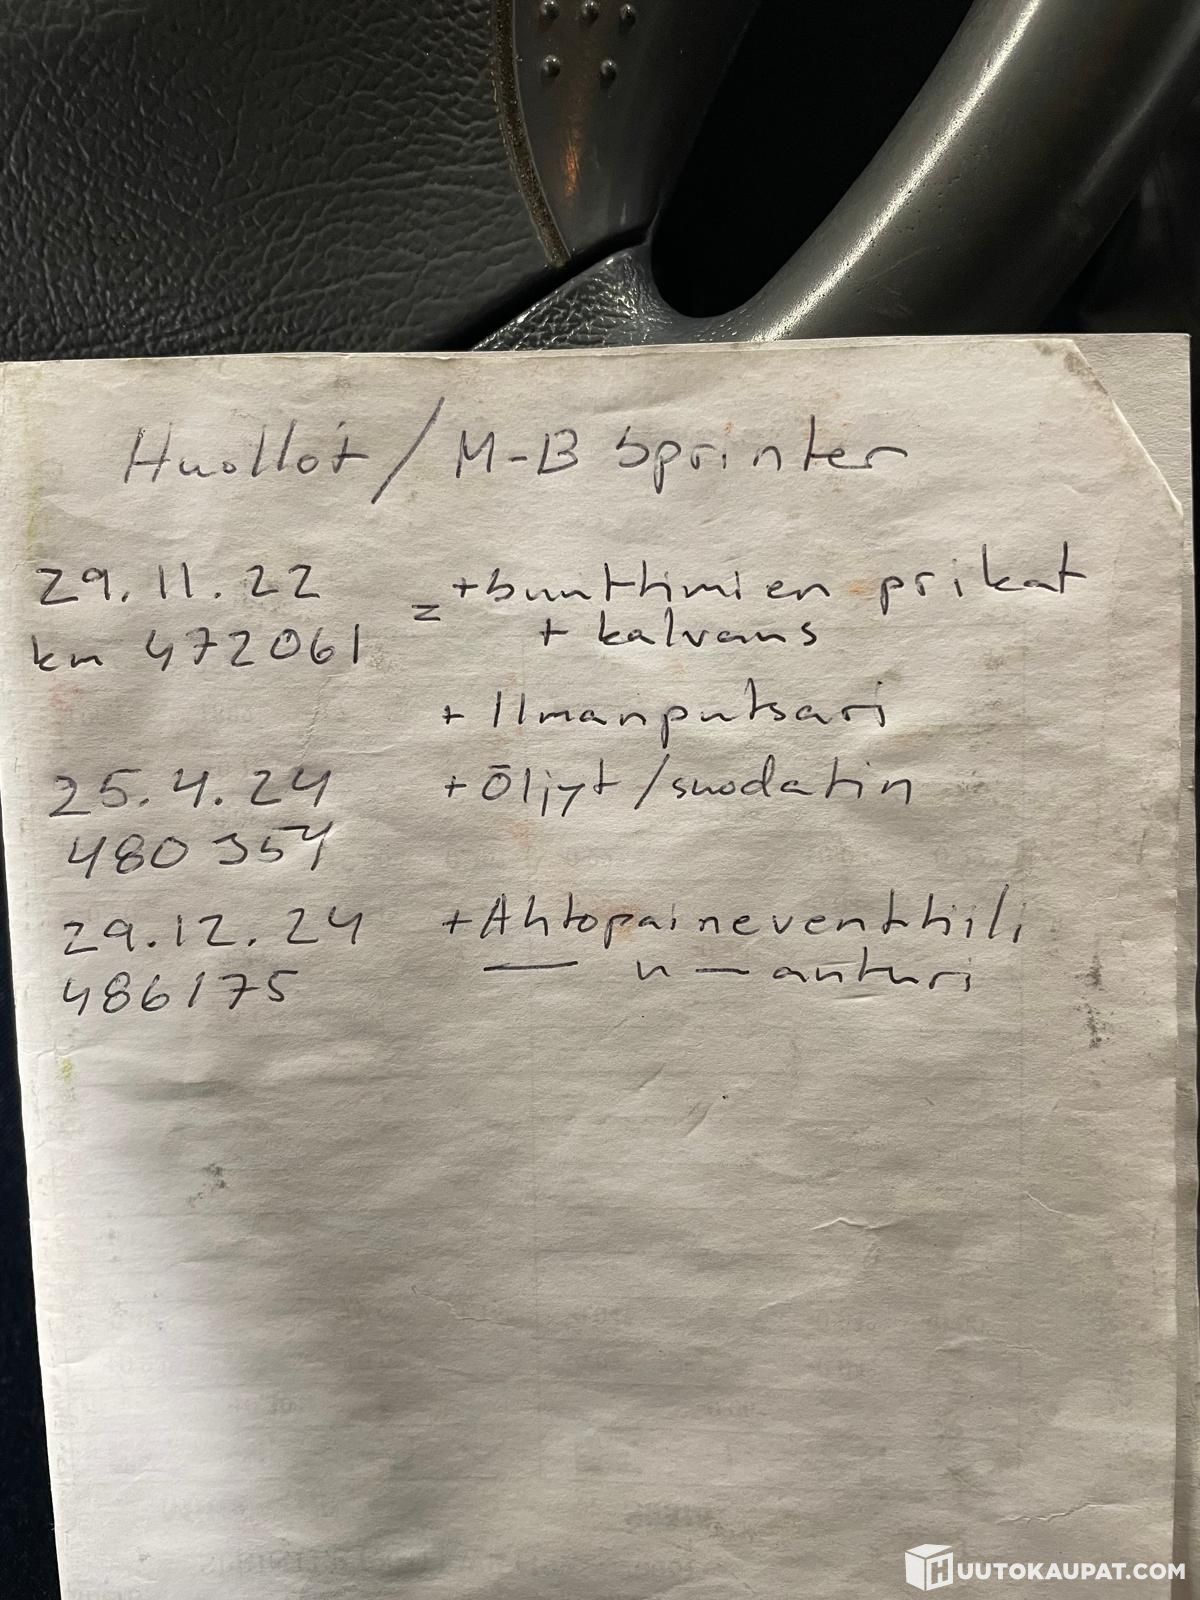 Huollot / M-B Sprinter
29.11.22 = + bunttimien prikat
km 472061 + kalvaus
+ Ilmanputsari
25.4.24 + Öljyt / suodatin
480354
29.12.24 + Ahtopaineventtiili
486175 — " — anturi
HUUTOKAUPAT.COM